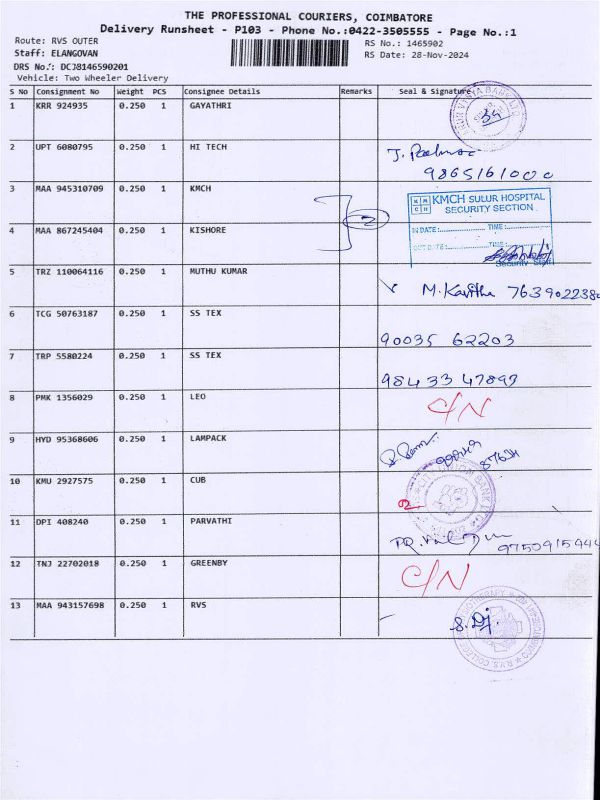 THE PROFESSIONAL COURIERS, COIMBATORE
Delivery Runsheet - P103 - Phone No.:0422-3505555 - Page No.:1
Route: RVS OUTER
RS No.: 1465902
Staff: ELANGOVAN
RS Date: 28-Nov-2024
DRS No.: DCJ8146590201
Vehicle: Two Wheeler Delivery
S No Consignment No Weight PCS Consignee Details Remarks Seal & Signature
1 KRR 924935 0.250 1 GAYATHRI
2 UPT 6080795 0.250 1 HI TECH
9865161000
3 MAA 945310709 0.250 1 KMCH
KMCH SULUR HOSPITAL
SECURITY SECTION
IN DATE: TIME:
OUT DATE: TIME:
Security Staff
2
4 MAA 867245404 0.250 1 KISHORE
5 TRZ 110064116 0.250 1 MUTHU KUMAR
M. Kavitha
6 TCG 50763187 0.250 1 SS TEX
90035 62203
7 TRP 5580224 0.250 1 SS TEX
98433 47897
8 PMK 1356029 0.250 1 LEO
C/N
9 HYD 95368606 0.250 1 LAMPACK
10 KMU 2927575 0.250 1 CUB
11 DPI 408240 0.250 1 PARVATHI
12 TNJ 22702018 0.250 1 GREENBY
C/N
13 MAA 943157698 0.250 1 RVS